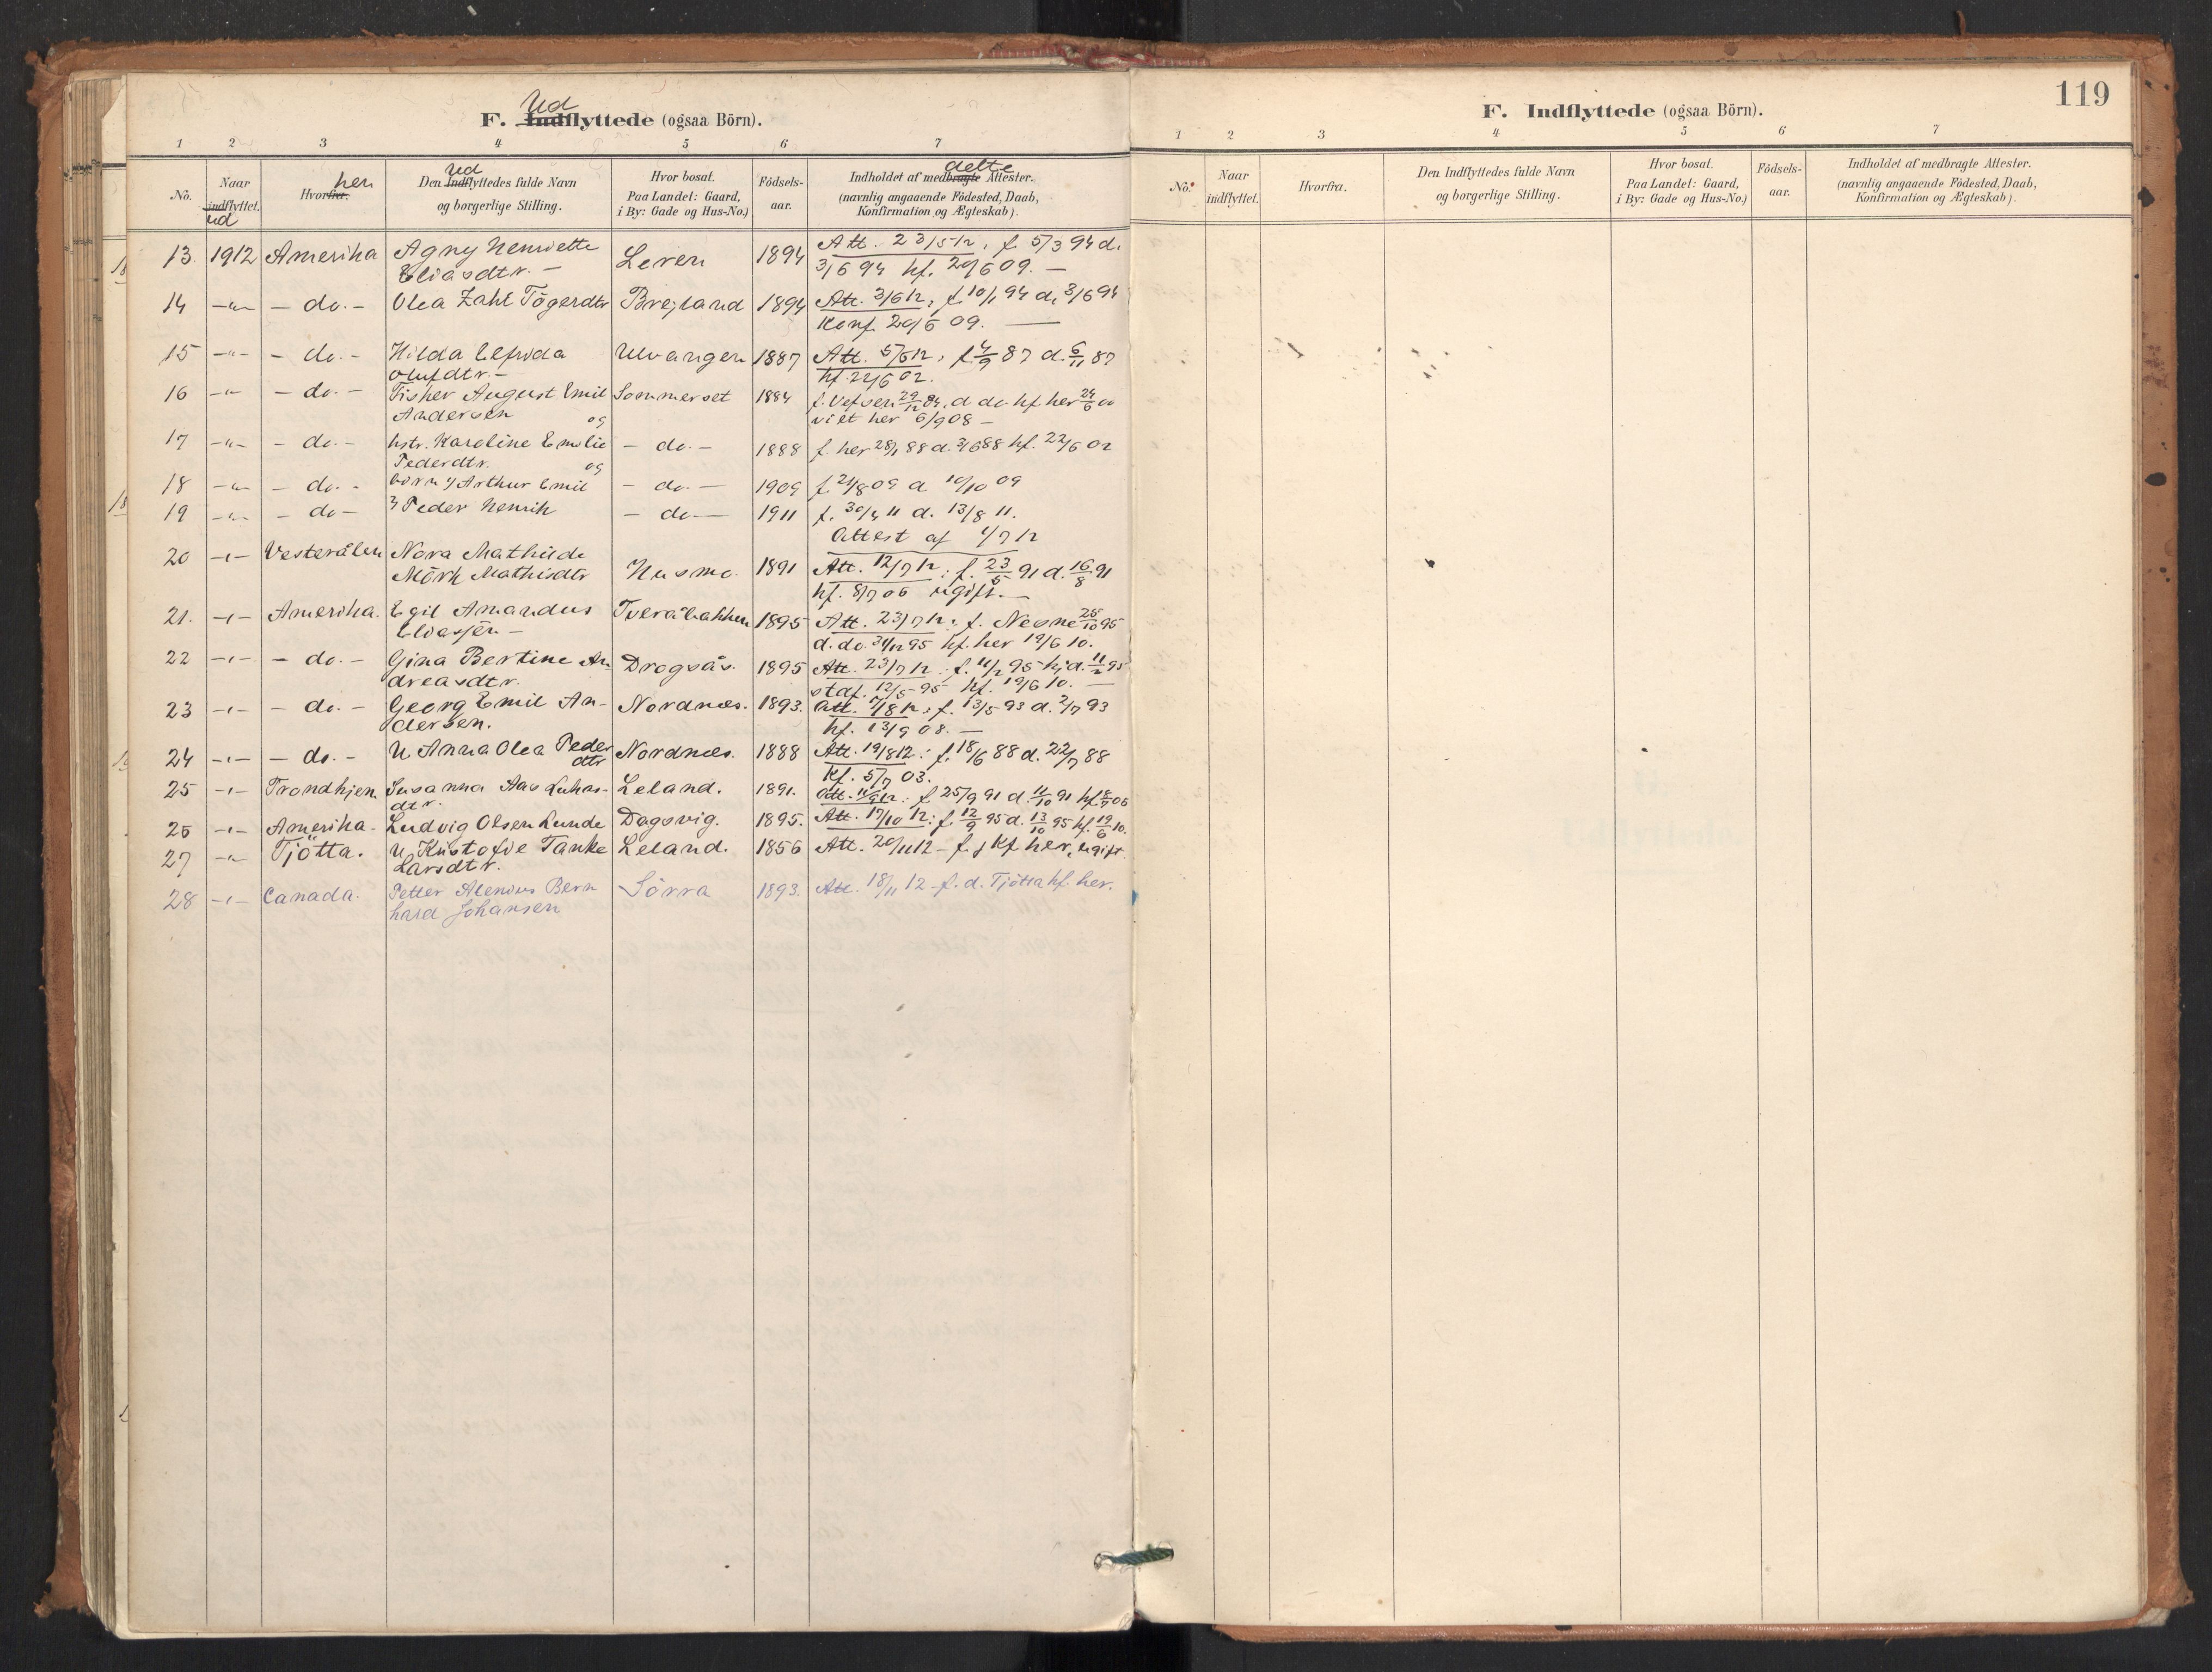 F. Indflyttede (ogsaa Börn).
Ud
1 2 3 4 5 6 7
No. Naar indflyttet. ud
Hvorfra. hen
Den Indflyttedes fulde Navn og borgerlige Stilling. Ud
Hvor bosat. Paa Landet: Gaard, i By: Gade og Hus-No.)
Födsels-aar.
Indholdet af medbragte Attester. delte
(navnlig angaaende Födested, Daab, Konfirmation og Ægteskab).
13. 1912 Amerika Agny Henriette Leren 1894 Att. 23/5 12, f. 5/3 94 d.
Eliasdtr. — 3/6 94 kf. 20/6 09. —
14 —"— — do. — Olea Zahl Tögersdtr Breiland 1894 Att. 3/6 12, f. 10/1 94 d. 3/6 94
Konf. 20/6 09. —
15 —"— — do. — Hilda Ulvangen 1887 Att. 5/6 12, f. 4/9 87 d. 6/11 87
Olufdtr. — kf. 22/6 02.
16 —"— — do. — Fisker August Emil Sommerset 1884 f. Vefsen 29/12 84, d. do. kf. her 24/6 00
Andersen og viet her 6/9 08 —
17 —"— — do. — hstr. Karoline Emilie — do. — 1888 f. her 28/1 88 d. 3/6 88 kf. 22/6 02
Pederdtr. og
18 —"— — do. — börn 1) Arthur Emil — do. — 1909 f. 21/8 09 d. 10/10 09
19 —"— — do — 2) Peder Henrik — do — 1911 f. 30/4 11 d. 13/8 11.
Attest af 4/7 12
20 —"— Vesterålen Nora Mathilde
Mörk Mathisdtr Husmo. 1891 Att. 12/7 12; f. 23/5 91 d. 16/8 91
kf. 8/7 06 ugift. —
21. —"— Amerika. Egil Amandus Tveråbakken 1895 Att. 23/7 12; f. Nesne 25/10 95
Eliassen — d. do. 31/12 95 kf. her 19/6 10.
22 —"— — do. — Gina Bertine An- Dragsås. 1895 Att. 23/7 12. f. 11/2 95 hjd. 11/2 95
dreasdtr. stadf. 12/5 95 kf. 19/6 10. —
23 —"— — do. — Georg Emil An- Nordnæs. 1893. Att. 7/8 12; f. 13/5 93 d. 2/7 93
dersen. kf. 13/9 08. —
24 —"— — do. — U. Anna Olea Peder Nordnæs. 1888 Att. 19/8 12: f. 18/6 88 d. 22/7 88
dtr Kf. 5/7 03.
25 —"— Trondhjem Susanna Aas Lukas- Leland. 1891. Att. 11/9 12: f. 25/9 91 d. 11/10 91 kf. 8/7 06
dtr.
26 —"— Amerika. Ludvig Olsen Lunde Dagsvig. 1895. Att. 17/10 12: f. 12/9 95 d. 13/10 95 kf. 19/6 10.
27 —"— Tjötta. U. Kristofie Tanke Leland. 1856 Att. 20/11 12 - f. j Kf her, ugift.
Larsdtr.
28 —"— Canada. Petter Bern Sörra 1893. Att. 18/11 12 - f. d. Tjötta kf. her.
hard Johansen
119
F. Indflyttede (ogsaa Börn).
1 2 3 4 5 6 7
No. Naar indflyttet.
Hvorfra.
Den Indflyttedes fulde Navn og borgerlige Stilling.
Hvor bosat. Paa Landet: Gaard, i By: Gade og Hus-No.)
Födsels-aar.
Indholdet af medbragte Attester.
(navnlig angaaende Födested, Daab, Konfirmation og Ægteskab).